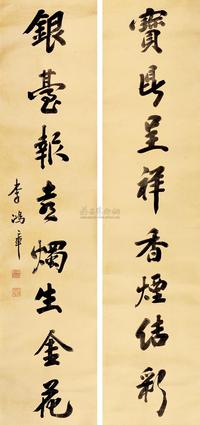 寶鼎呈祥香煙結彩
銀臺報喜燭生金花
李鴻章